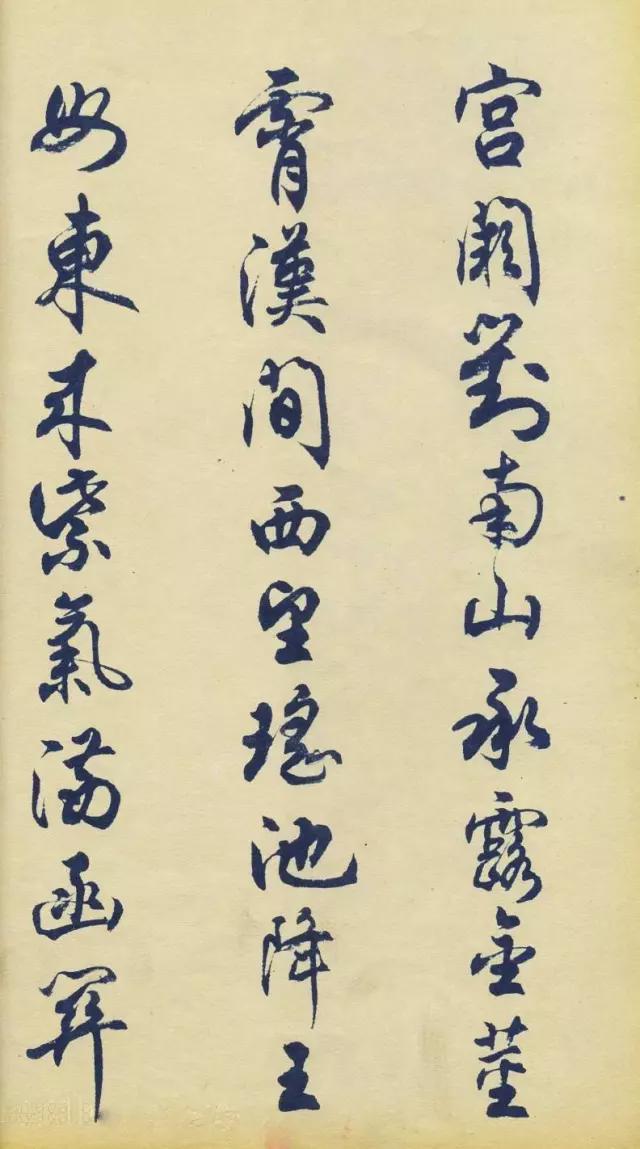 宫阙對南山承露金莖
霄漢間西望瑤池降王
母東来紫氣满函関